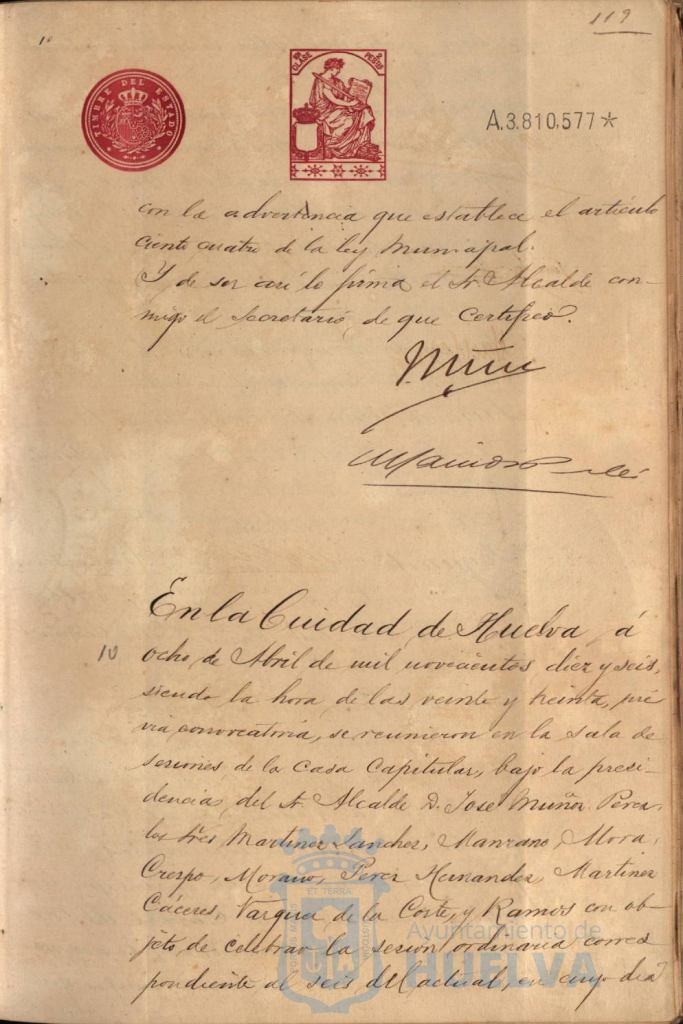 119
10
TIMBRE DEL ESTADO
CLASE PESETAS
A.3.810,577*
con la advertencia que establece el artículo
ciento cuatro de la ley Municipal.
Y de ser así lo firma el Sr. Alcalde con-
migo el Secretario, de que Certifico.
En la Ciudad de Huelva, á
10
ocho de Abril de mil novecientos diez y seis,
siendo la hora de las veinte y treinta, pré
via convocatoria, se reunieron en la sala de
sesiones de la Casa Capitular, bajo la presi-
dencia, del Sr. Alcalde D. José Muñoz Perez,
los Sres Martinez Sanchez, Manzano, Mora,
Crespo, Morano, Perez Hernandez, Martinez
Cáceres, Vazquez de la Corte, y Ramos con ob-
jeto, de celebrar la sesion ordinaria corres
pondiente al seis del actual, en cuyo dia
ET TERRA
Ayuntamiento de
HUELVA